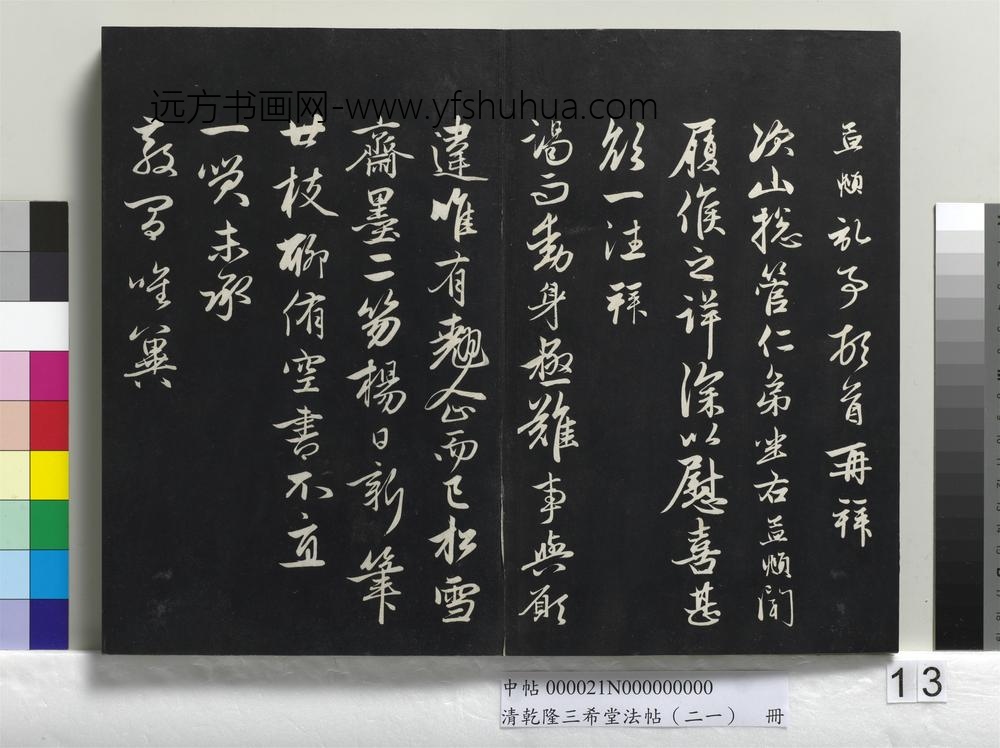 远方书画网-www.yfshuhua.com
孟頫記事頓首再拜
次山總管仁弟坐右孟頫聞
履候之詳深以慰喜甚
欲一往拜
謁而動身極難事與願
違唯有翹企而已松雪
齋墨二笏楊日新筆
廿枝聊侑空書不直
一笑未承
教間唯冀
中帖 000021N000000000
清乾隆三希堂法帖（二一） 冊
13